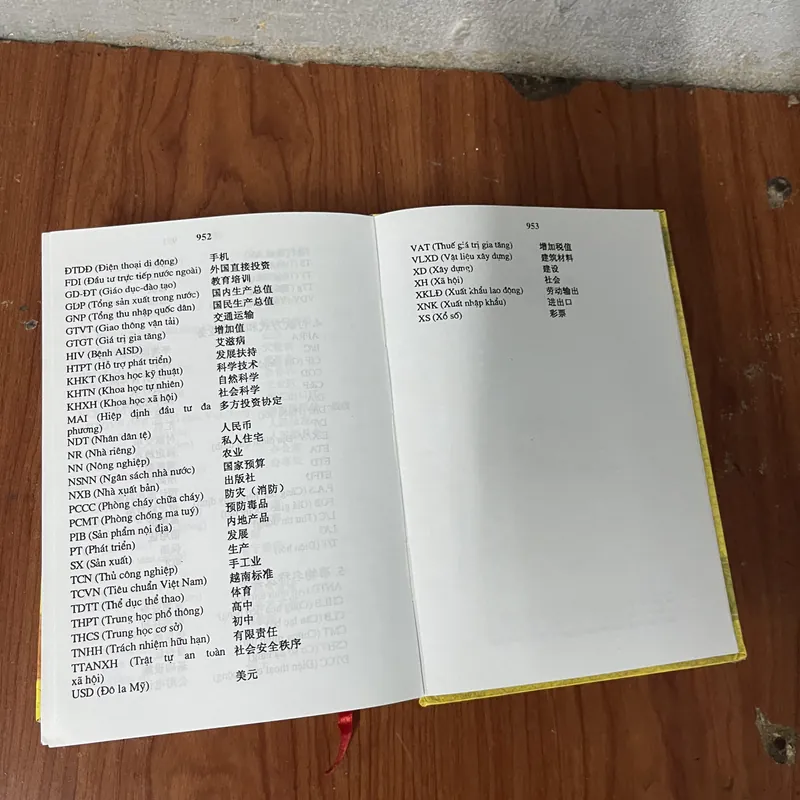 952
ĐTDĐ (Điện thoại di động) 手机
FDI (Đầu tư trực tiếp nước ngoài) 外国直接投资
GD-ĐT (Giáo dục-đào tạo) 教育培训
GDP (Tổng sản xuất trong nước) 国内生产总值
GNP (Tổng thu nhập quốc dân) 国民生产总值
GTVT (Giao thông vận tải) 交通运输
GTGT (Giá trị gia tăng) 增加值
HIV (Bệnh AISD) 艾滋病
HTPT (Hỗ trợ phát triển) 发展扶持
KHKT (Khoa học kỹ thuật) 科学技术
KHTN (Khoa học tự nhiên) 自然科学
KHXH (Khoa học xã hội) 社会科学
MAI (Hiệp định đầu tư đa 多方投资协定
phương)
NDT (Nhân dân tệ) 人民币
NR (Nhà riêng) 私人住宅
NN (Nông nghiệp) 农业
NSNN (Ngân sách nhà nước) 国家预算
NXB (Nhà xuất bản) 出版社
PCCC (Phòng cháy chữa cháy) 防灾（消防）
PCMT (Phòng chống ma tuý) 预防毒品
PIB (Sản phẩm nội địa) 内地产品
PT (Phát triển) 发展
SX (Sản xuất) 生产
TCN (Thủ công nghiệp) 手工业
TCVN (Tiêu chuẩn Việt Nam) 越南标准
TDTT (Thể dục thể thao) 体育
THPT (Trung học phổ thông) 高中
THCS (Trung học cơ sở) 初中
TNHH (Trách nhiệm hữu hạn) 有限责任
TTANXH (Trật tự an toàn 社会安全秩序
xã hội)
USD (Đô la Mỹ) 美元
953
VAT (Thuế giá trị gia tăng) 增加税值
VLXD (Vật liệu xây dựng) 建筑材料
XD (Xây dựng) 建设
XH (Xã hội) 社会
XKLĐ (Xuất khẩu lao động) 劳动输出
XNK (Xuất nhập khẩu) 进出口
XS (Xổ số) 彩票